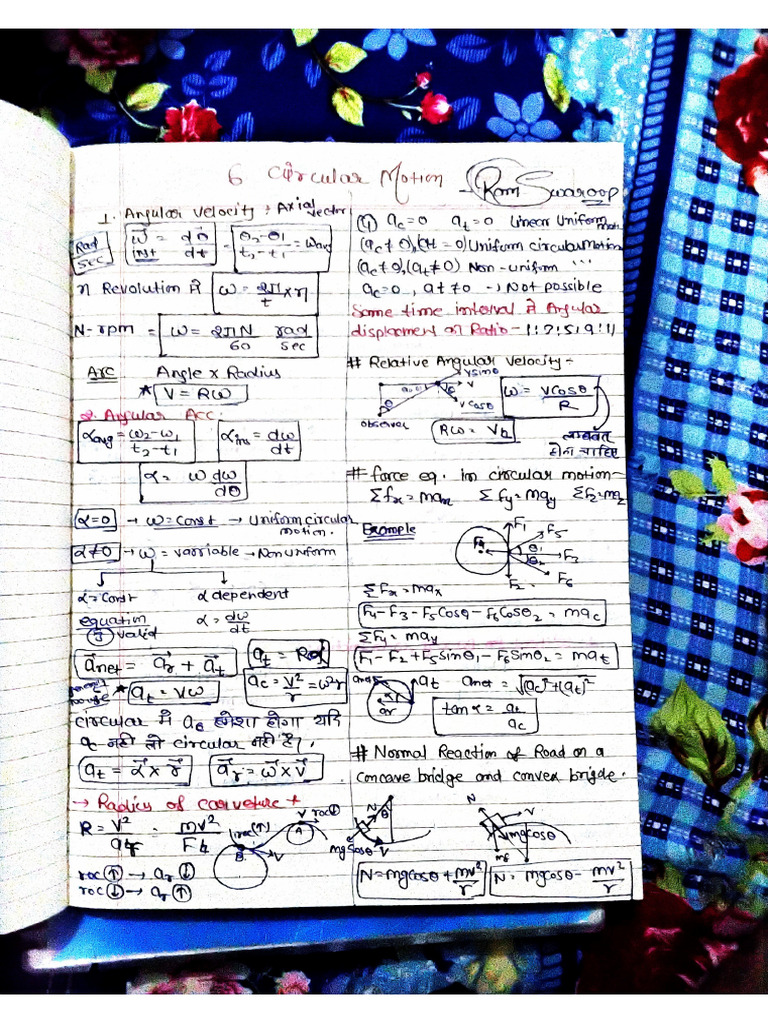 6 Circular Motion - Ram Swaroop
1. Angular Velocity : Axial vector
Rad/sec
ω⃗ inst = dθ/dt = θ2-θ1/t2-t1 = ωavg
n Revolution में ω = 2π/t × n
N-rpm = ω = 2πN/60 rad/sec
Arc Angle × Radius
* V = Rω
2. Angular Acc.
αavg = ω2-ω1/t2-t1 αins = dω/dt
α = ω dω/dθ
α=0 → ω = const → Uniform circular motion.
α≠0 → ω = varriable → Non uniform
α = const α dependent
equation valid α = dω/dt
a⃗net = a⃗r + a⃗t at = Rα
* at = Vω ac = V²/r = ω²r
circular में ac हमेशा होगा यदि
नही तो circular नही है।
a⃗t = α⃗ × r⃗ a⃗r = ω⃗ × v⃗
→ Radius of carveture
R = V²/ar = mV²/F⊥ roc(↑) B V V roc↓ A
roc ↑ → ar ↓
roc ↓ → ar ↑
ac=0 at=0 Linear Uniform motn
(ac≠0),(at=0) Uniform circular motion
(ac≠0),(at≠0) Non-uniform "
ac=0, at≠0 → Not possible
Same time interval में Angular
displacement का Ratio -
# Relative Angular Velocity -
Vsinθ V Vcosθ θ observer
ω = Vcosθ/R
Rω = V⊥
लम्बवत होना चाहिए
# force eq. in circular motion -
Σfx = max Σfy = may Σfz = maz
Example F1 F5 F4 θ1 θ2 F3 F2 F6
ΣFx = max
F4-F3-F5Cosθ-F6Cosθ2 = mac
ΣFy = may
F1-F2+F5Sinθ1-F6Sinθ2 = mat
anet at ar anet = √(ac)²+(at)²
tanα = at/ac
# Normal Reaction of Road on a
concave bridge and convex brigde.
N θ mgcosθ V N V mgcosθ mg
N = mgcosθ + mv²/r N = mgcosθ - mv²/r